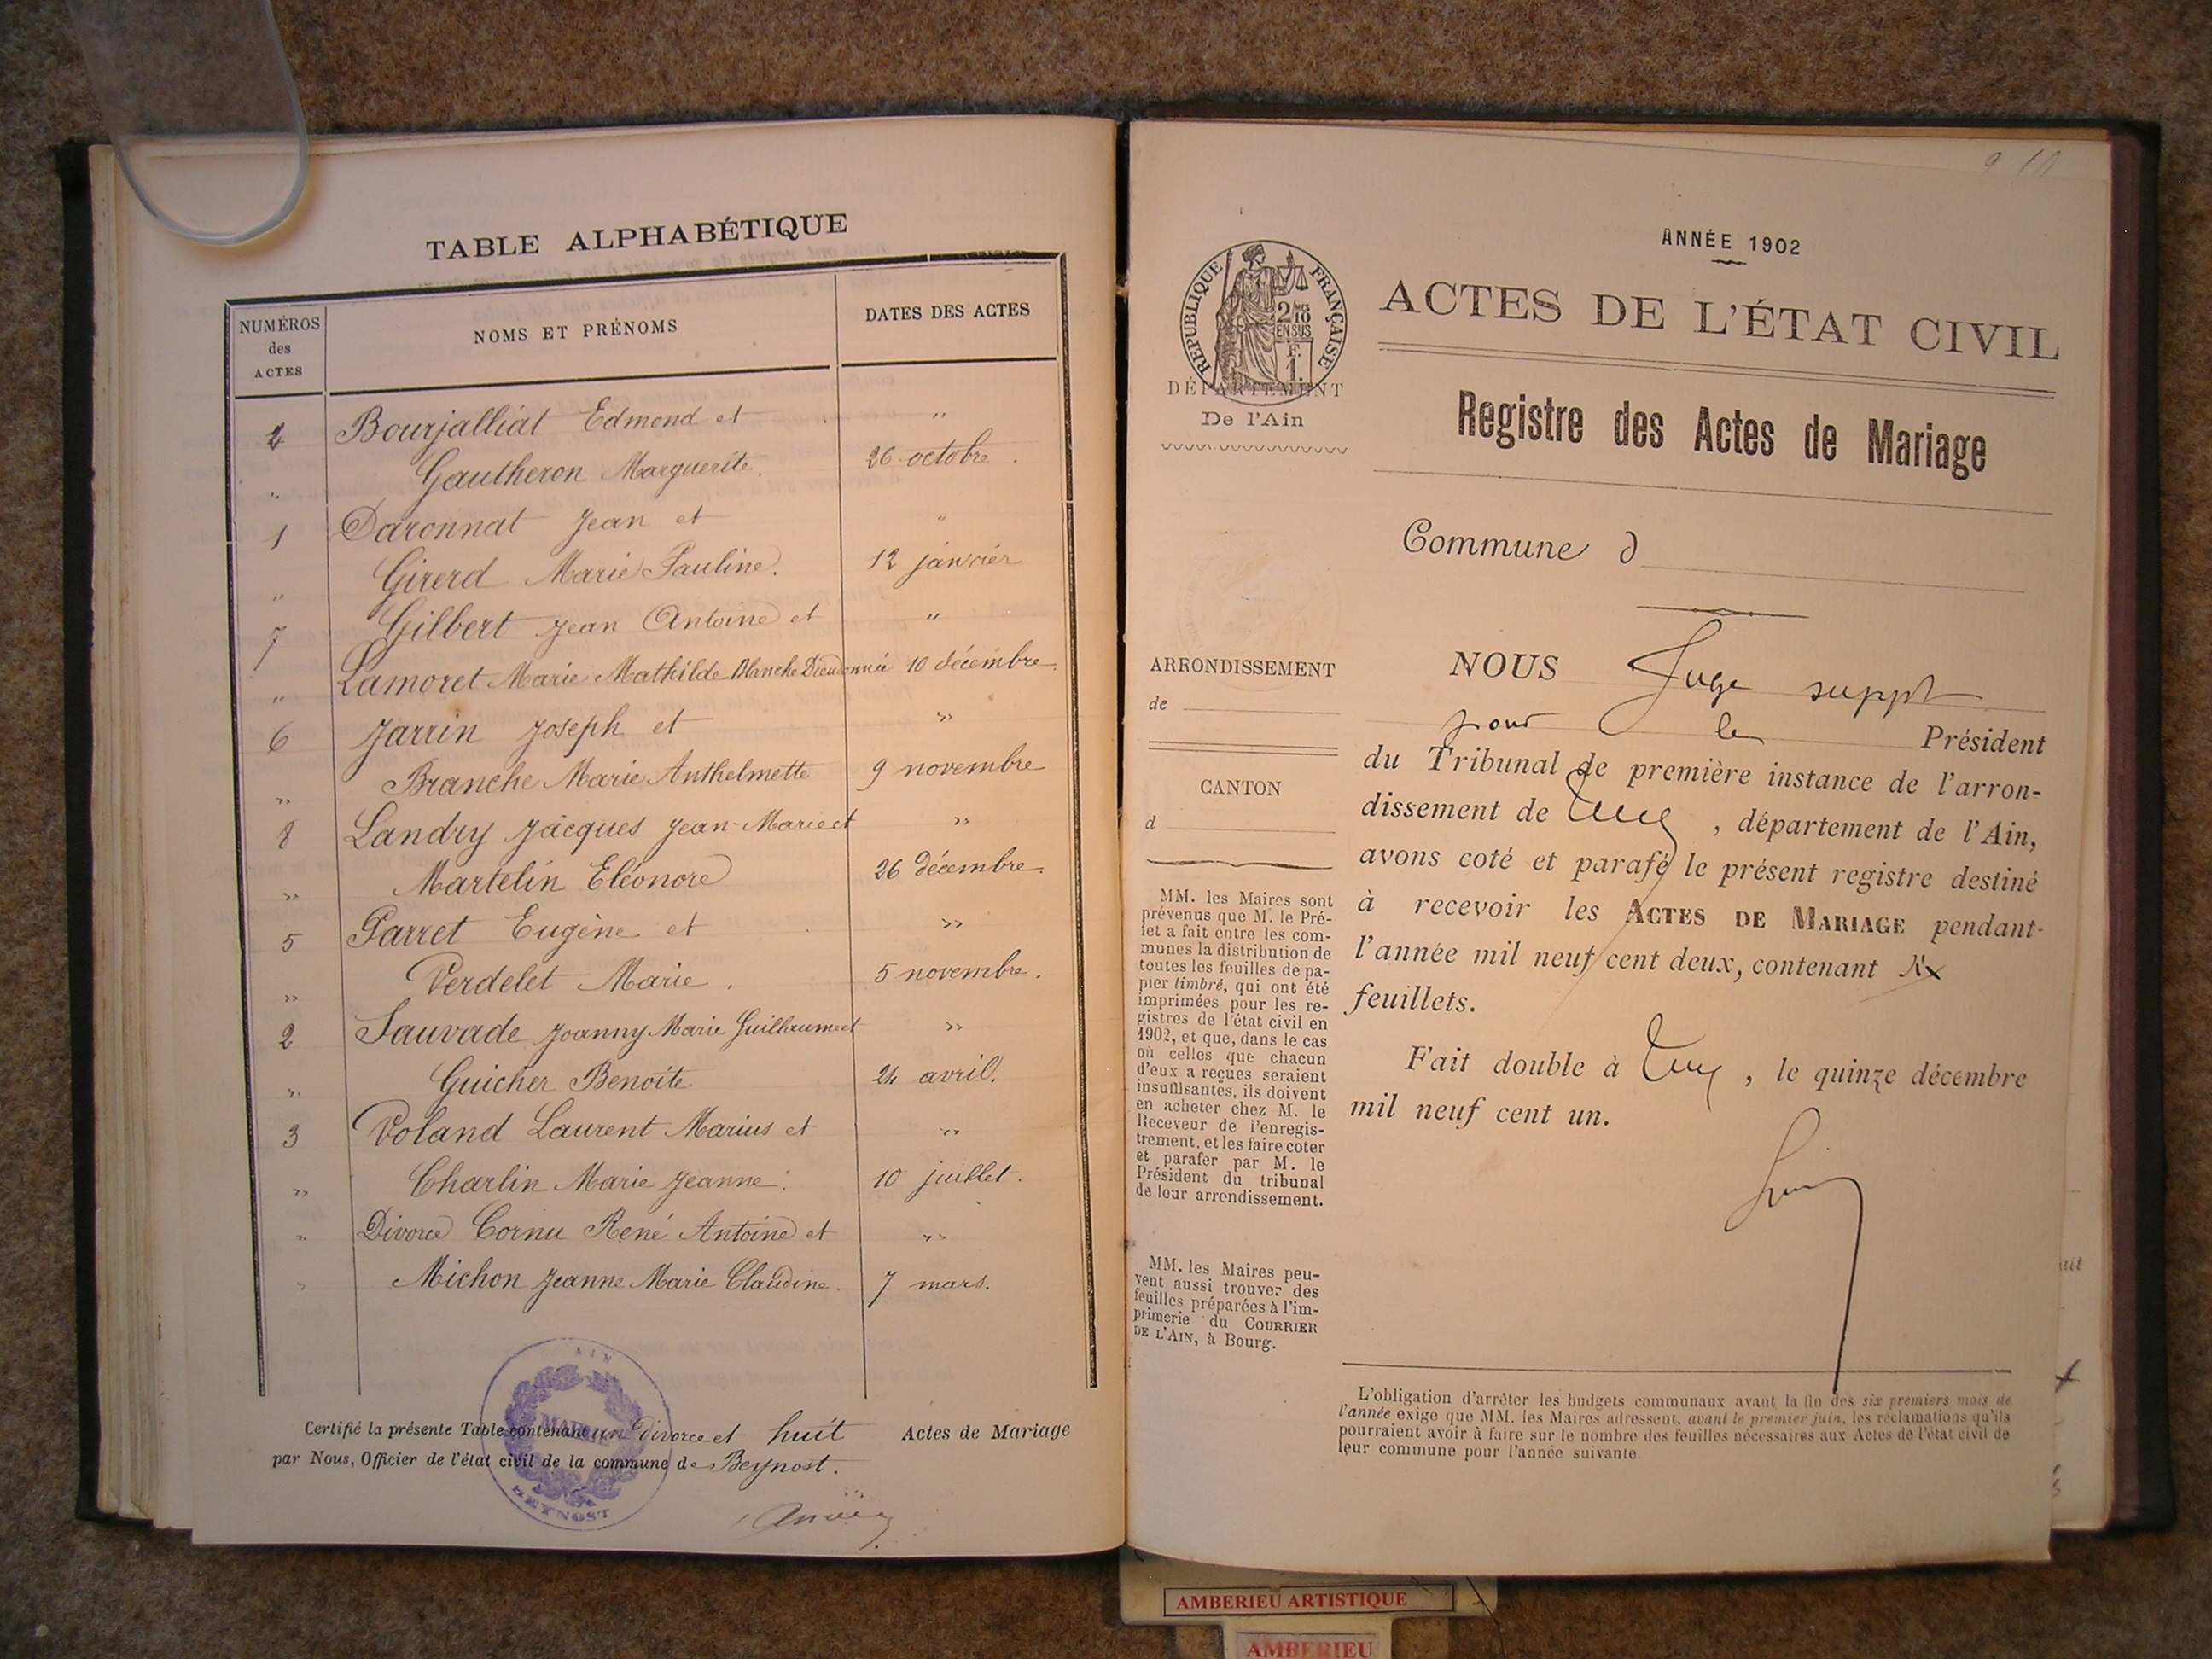 TABLE ALPHABÉTIQUE
NUMÉROS des ACTES
NOMS ET PRÉNOMS
DATES DES ACTES
Bourjalliat Edmond et "
" Gautheron Marguerite. 26 octobre.
1 Daronnat Jean et "
" Girerd Marie Pauline. 12 janvier
7 Gilbert Jean Antoine et "
" Lamoret Marie Mathilde Blanche Dieudonnée 10 décembre.
6 Jarrin Joseph et "
" Branche Marie Anthelmette 9 novembre
8 Landry Jacques Jean-Marie et "
" Martelin Eléonore 26 décembre.
5 Parret Eugène et "
" Verdelet Marie. 5 novembre.
2 Sauvade Joanny Marie Guillaume et "
" Guicher Benoîte 24 avril.
3 Voland Laurent Marius et "
" Charlin Marie Jeanne. 10 juillet.
" Divorce Cornu René Antoine et "
" Michon Jeanne Marie Claudine. 7 mars.
AIN
MAIRIE
BEYNOST
Certifié la présente Table contenant un divorce et huit Actes de Mariage
par Nous, Officier de l'état civil de la commune de Beynost.
ANNÉE 1902
RÉPUBLIQUE FRANÇAISE
2/10 EN SUS
F. 1.
ACTES DE L'ÉTAT CIVIL
DÉPARTEMENT
De l'Ain
Registre des Actes de Mariage
Commune d
ARRONDISSEMENT
de
CANTON
d
MM. les Maires sont
prévenus que M. le Pré-
fet a fait entre les com-
munes la distribution de
toutes les feuilles de pa-
pier timbré, qui ont été
imprimées pour les re-
gistres de l'état civil en
1902, et que, dans le cas
où celles que chacun
d'eux a reçues seraient
insuffisantes, ils doivent
en acheter chez M. le
Receveur de l'enregis-
trement, et les faire coter
et parafer par M. le
Président du tribunal
de leur arrondissement.
MM. les Maires peu-
vent aussi trouver des
feuilles préparées à l'im-
primerie du COURRIER
DE L'AIN, à Bourg.
NOUS Juge suppt
pour le Président
du Tribunal de première instance de l'arron-
dissement de , département de l'Ain,
avons coté et parafé le présent registre destiné
à recevoir les ACTES DE MARIAGE pendant
l'année mil neuf cent deux, contenant
feuillets.
Fait double à , le quinze décembre
mil neuf cent un.
L'obligation d'arrêter les budgets communaux avant la fin des six premiers mois de
l'année exige que MM. les Maires adressent, avant le premier juin, les réclamations qu'ils
pourraient avoir à faire sur le nombre des feuilles nécessaires aux Actes de l'état civil de
leur commune pour l'année suivante.
AMBERIEU ARTISTIQUE
AMBERIEU